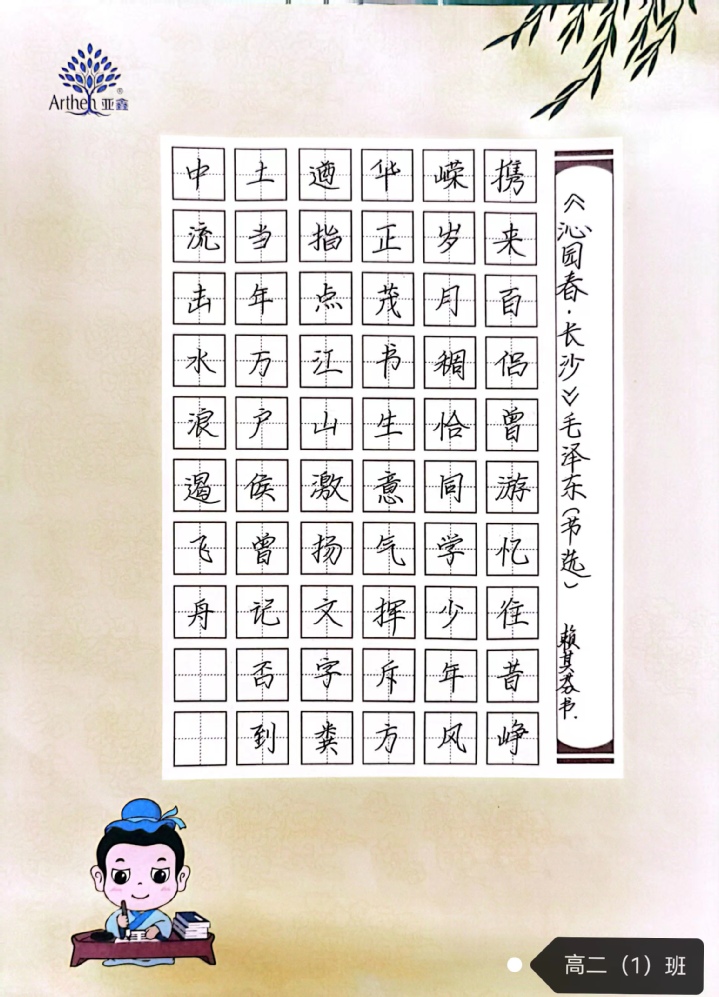 Arthen 亚鑫®
《沁园春·长沙》毛泽东(节选)
赖其芬书.
携来百侣曾游忆往昔峥
嵘岁月稠恰同学少年风
华正茂书生意气挥斥方
遒指点江山激扬文字粪
土当年万户侯曾记否到
中流击水浪遏飞舟
高二（1）班